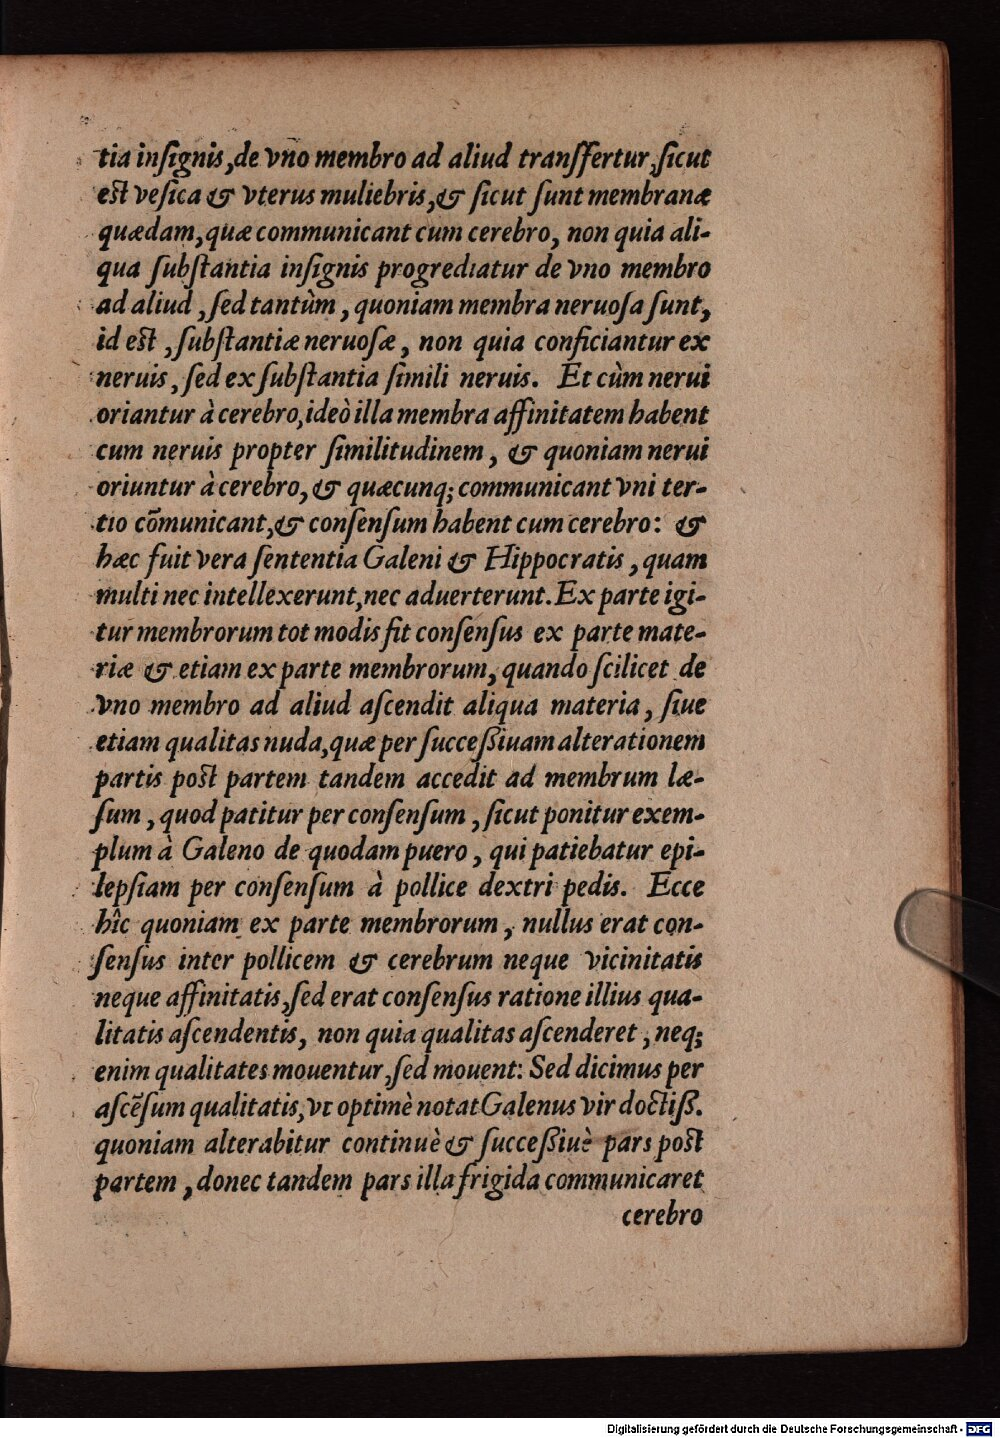 tia inſignis, de vno membro ad aliud tranſfertur, ſicut
est veſica & vterus muliebris, & ſicut ſunt membranæ
quædam, quæ communicant cum cerebro, non quia ali-
qua ſubſtantia inſignis progrediatur de vno membro
ad aliud, ſed tantùm, quoniam membra neruoſa ſunt,
id est, ſubſtantiæ neruoſæ, non quia conficiantur ex
neruis, ſed ex ſubſtantia ſimili neruis. Et cùm nerui
oriantur à cerebro, ideò illa membra affinitatem habent
cum neruis propter ſimilitudinem, & quoniam nerui
oriuntur à cerebro, & quæcunq; communicant vni ter-
tio cōmunicant, & conſenſum habent cum cerebro: &
hæc fuit vera ſententia Galeni & Hippocratis, quam
multi nec intellexerunt, nec aduerterunt. Ex parte igi-
tur membrorum tot modis fit conſenſus ex parte mate-
riæ & etiam ex parte membrorum, quando ſcilicet de
vno membro ad aliud aſcendit aliqua materia, ſiue
etiam qualitas nuda, quæ per ſucceßiuam alterationem
partis post partem tandem accedit ad membrum læ-
ſum, quod patitur per conſenſum, ſicut ponitur exem-
plum à Galeno de quodam puero, qui patiebatur epi-
lepſiam per conſenſum à pollice dextri pedis. Ecce
hîc quoniam ex parte membrorum, nullus erat con-
ſenſus inter pollicem & cerebrum neque vicinitatis
neque affinitatis, ſed erat conſenſus ratione illius qua-
litatis aſcendentis, non quia qualitas aſcenderet, neq;
enim qualitates mouentur, ſed mouent: Sed dicimus per
aſcēſum qualitatis, vt optimè notat Galenus vir doctiß.
quoniam alterabitur continuè & ſucceßiuè pars post
partem, donec tandem pars illa frigida communicaret
cerebro
Digitalisierung gefördert durch die Deutsche Forschungsgemeinschaft - DFG